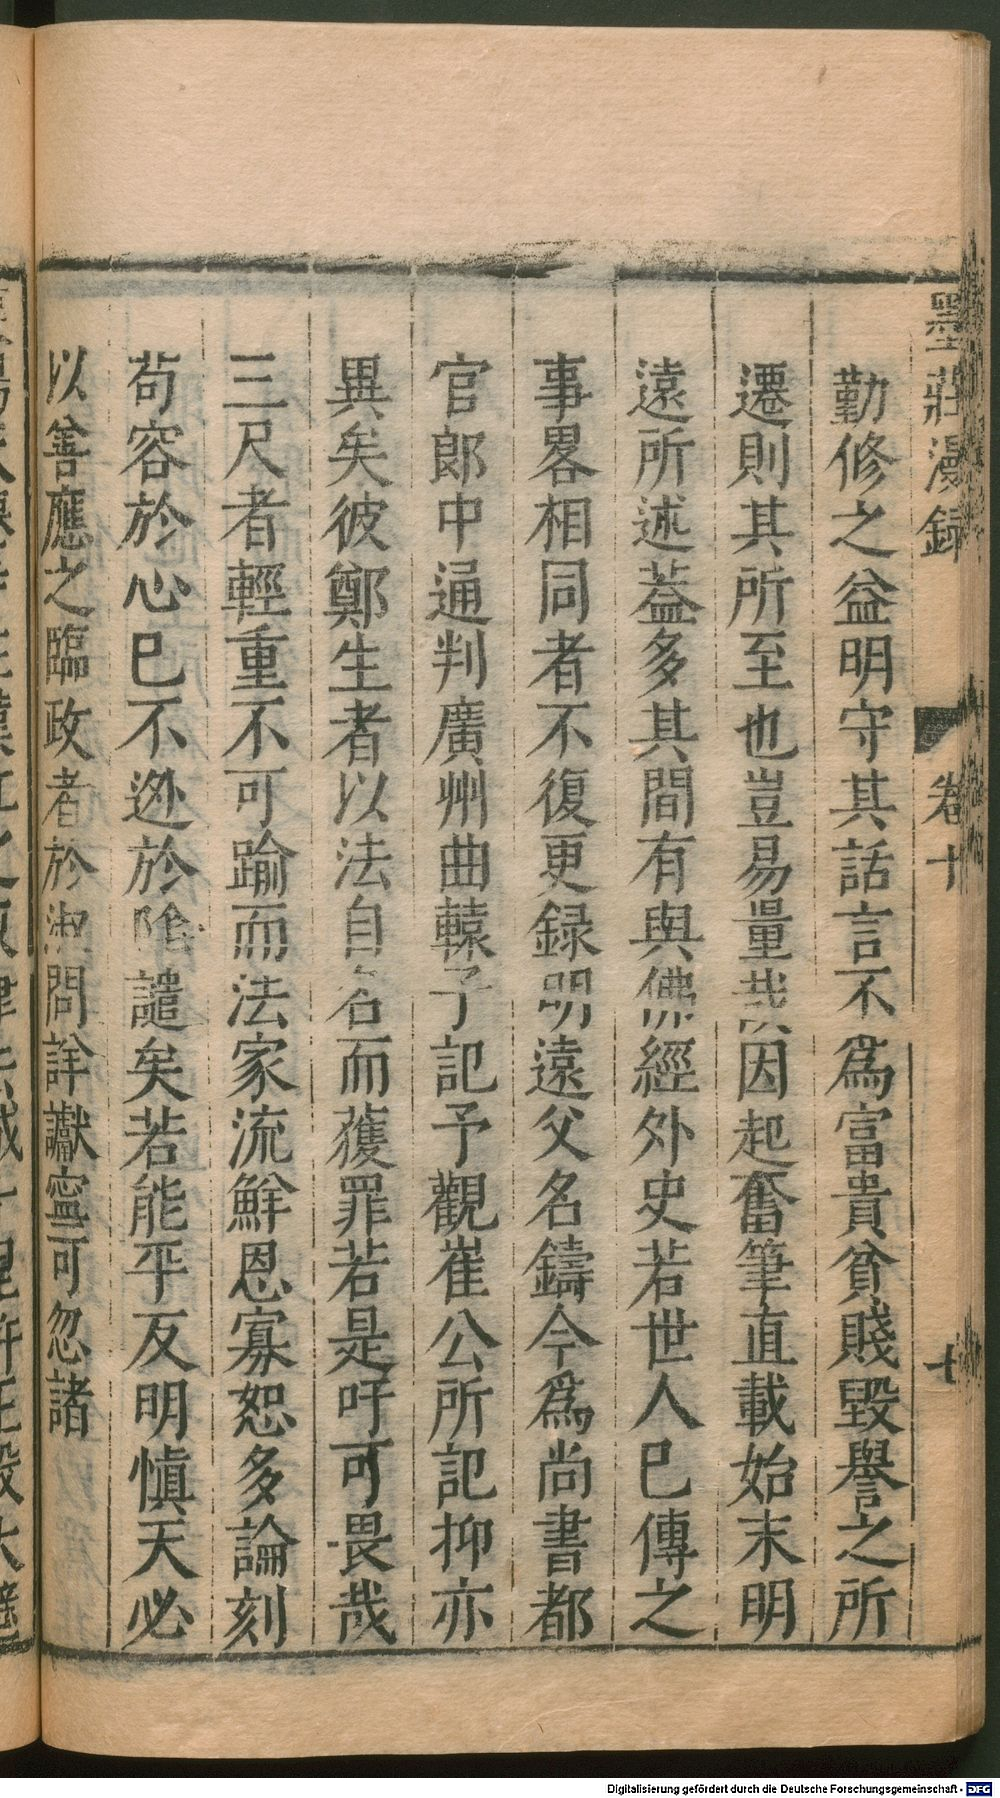 墨莊漫録 卷十 七
勤修之益明守其話言不爲富貴貧賤毀譽之所
遷則其所至也豈易量哉因起奮筆直載始末明
遠所述葢多其間有與佛經外史若世人巳傳之
事畧相同者不復更録明遠父名鑄今爲尚書都
官郎中通判廣州曲轅子記予觀崔公所記抑亦
異矣彼鄭生者以法自名而獲罪若是吁可畏哉
三尺者輕重不可踰而法家流鮮恩寡恕多論刻
苟容於心巳不逊於陰譴矣若能平反明愼天必
以善應之臨政者於淑問詳讞寧可忽諸
Digitalisierung gefördert durch die Deutsche Forschungsgemeinschaft - DFG